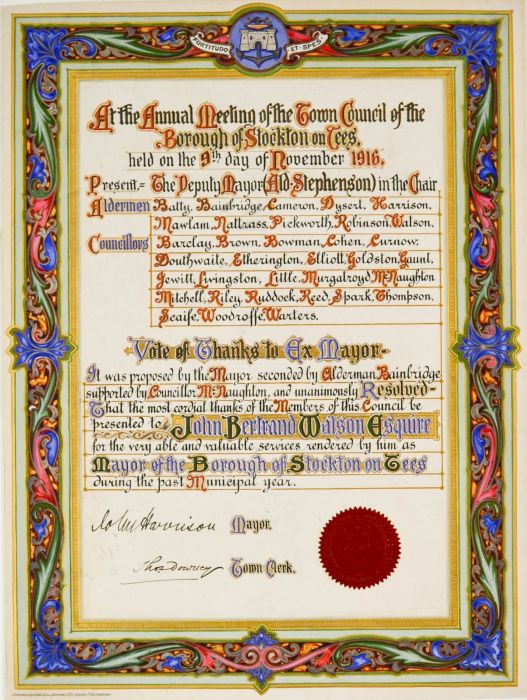 FORTITUDO ET SPES
At the Annual Meeting of the Town Council of the
Borough of Stockton on Tees,
held on the 9th day of November 1916.
Present.= The Deputy Mayor (Ald. Stephenson) in the Chair
Aldermen Batty, Bainbridge, Cameron, Dysert, Harrison,
Mawlam, Nattrass, Pickworth, Robinson, Watson,
Councillors Barclay, Brown, Bowman, Cohen, Curnow,
Douthwaite, Etherington, Elliott, Goldston, Gaunt,
Jewitt, Livingston, Little, Murgatroyd, McNaughton
Mitchell, Riley, Ruddock, Reed, Spark, Thompson,
Scaife, Woodroffe, Warters.
Vote of Thanks to Ex Mayor-
It was proposed by the Mayor seconded by Alderman Bainbridge
supported by Councillor McNaughton, and unanimously Resolved-
That the most cordial thanks of the Members of this Council be
presented to John Bertrand Watson Esquire
for the very able and valuable services rendered by him as
Mayor of the Borough of Stockton on Tees
during the past Municipal year.
John Harrison Mayor.
Thos Downey Town Clerk.